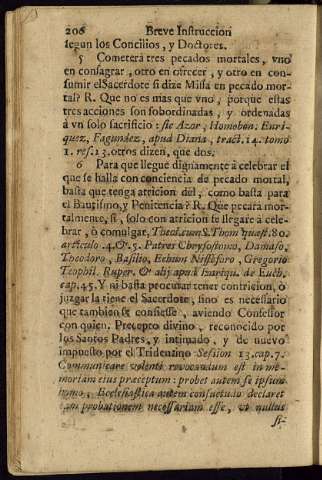 206 Breve Instruccion
segun los Concilios, y Doctores.
5 Cometerà tres pecados mortales, vno
en consagrar, otro en ofrecer, y otro en con-
sumir el Sacerdote si dize Missa en pecado mor-
tal? R. Que no es mas que vno, porque estas
tres acciones son subordinadas, y ordenadas
à vn solo sacrificio: sic Azor, Homobon: Enri-
quez, Fagundez, apud Diana, tract. 14. tomo
1. res. 13. otros dizen, que dos.
6 Para que llegue dignamente à celebrar el
que se halla con conciencia de pecado mortal,
basta que tenga atricion dèl, como basta para
el Bautismo, y Penitencia? R. Que pecarà mor-
talmente, si, solo con atricion se llegare à cele-
brar, ò comulgar, Theol. cum S. Thom quæst. 80.
articulo .4. & .5. Patres Chrysostomo, Damaso,
Theodoro, Basilio, Nissoforo, Gregorio
Teophil. Ruper. & alij apud Enriqu. de Euch.
cap. 45. Y ni basta procurar tener contricion, ò
juzgar la tiene el Sacerdote, sino es necessario
que tambien se confiesse, aviendo Confessor
con quien. Precepto divino, reconocido por
los Santos Padres, y intimado, y de nuevo
impuesto por el Tridentino Session 13. cap. 7.
Communicare volenti revocandum est in me-
moriam eius præceptum: probet autem se ipsum
homo, Ecclesiastica autem consuetudo declarat
eam probationem necessariam esse, vt nullus
si-